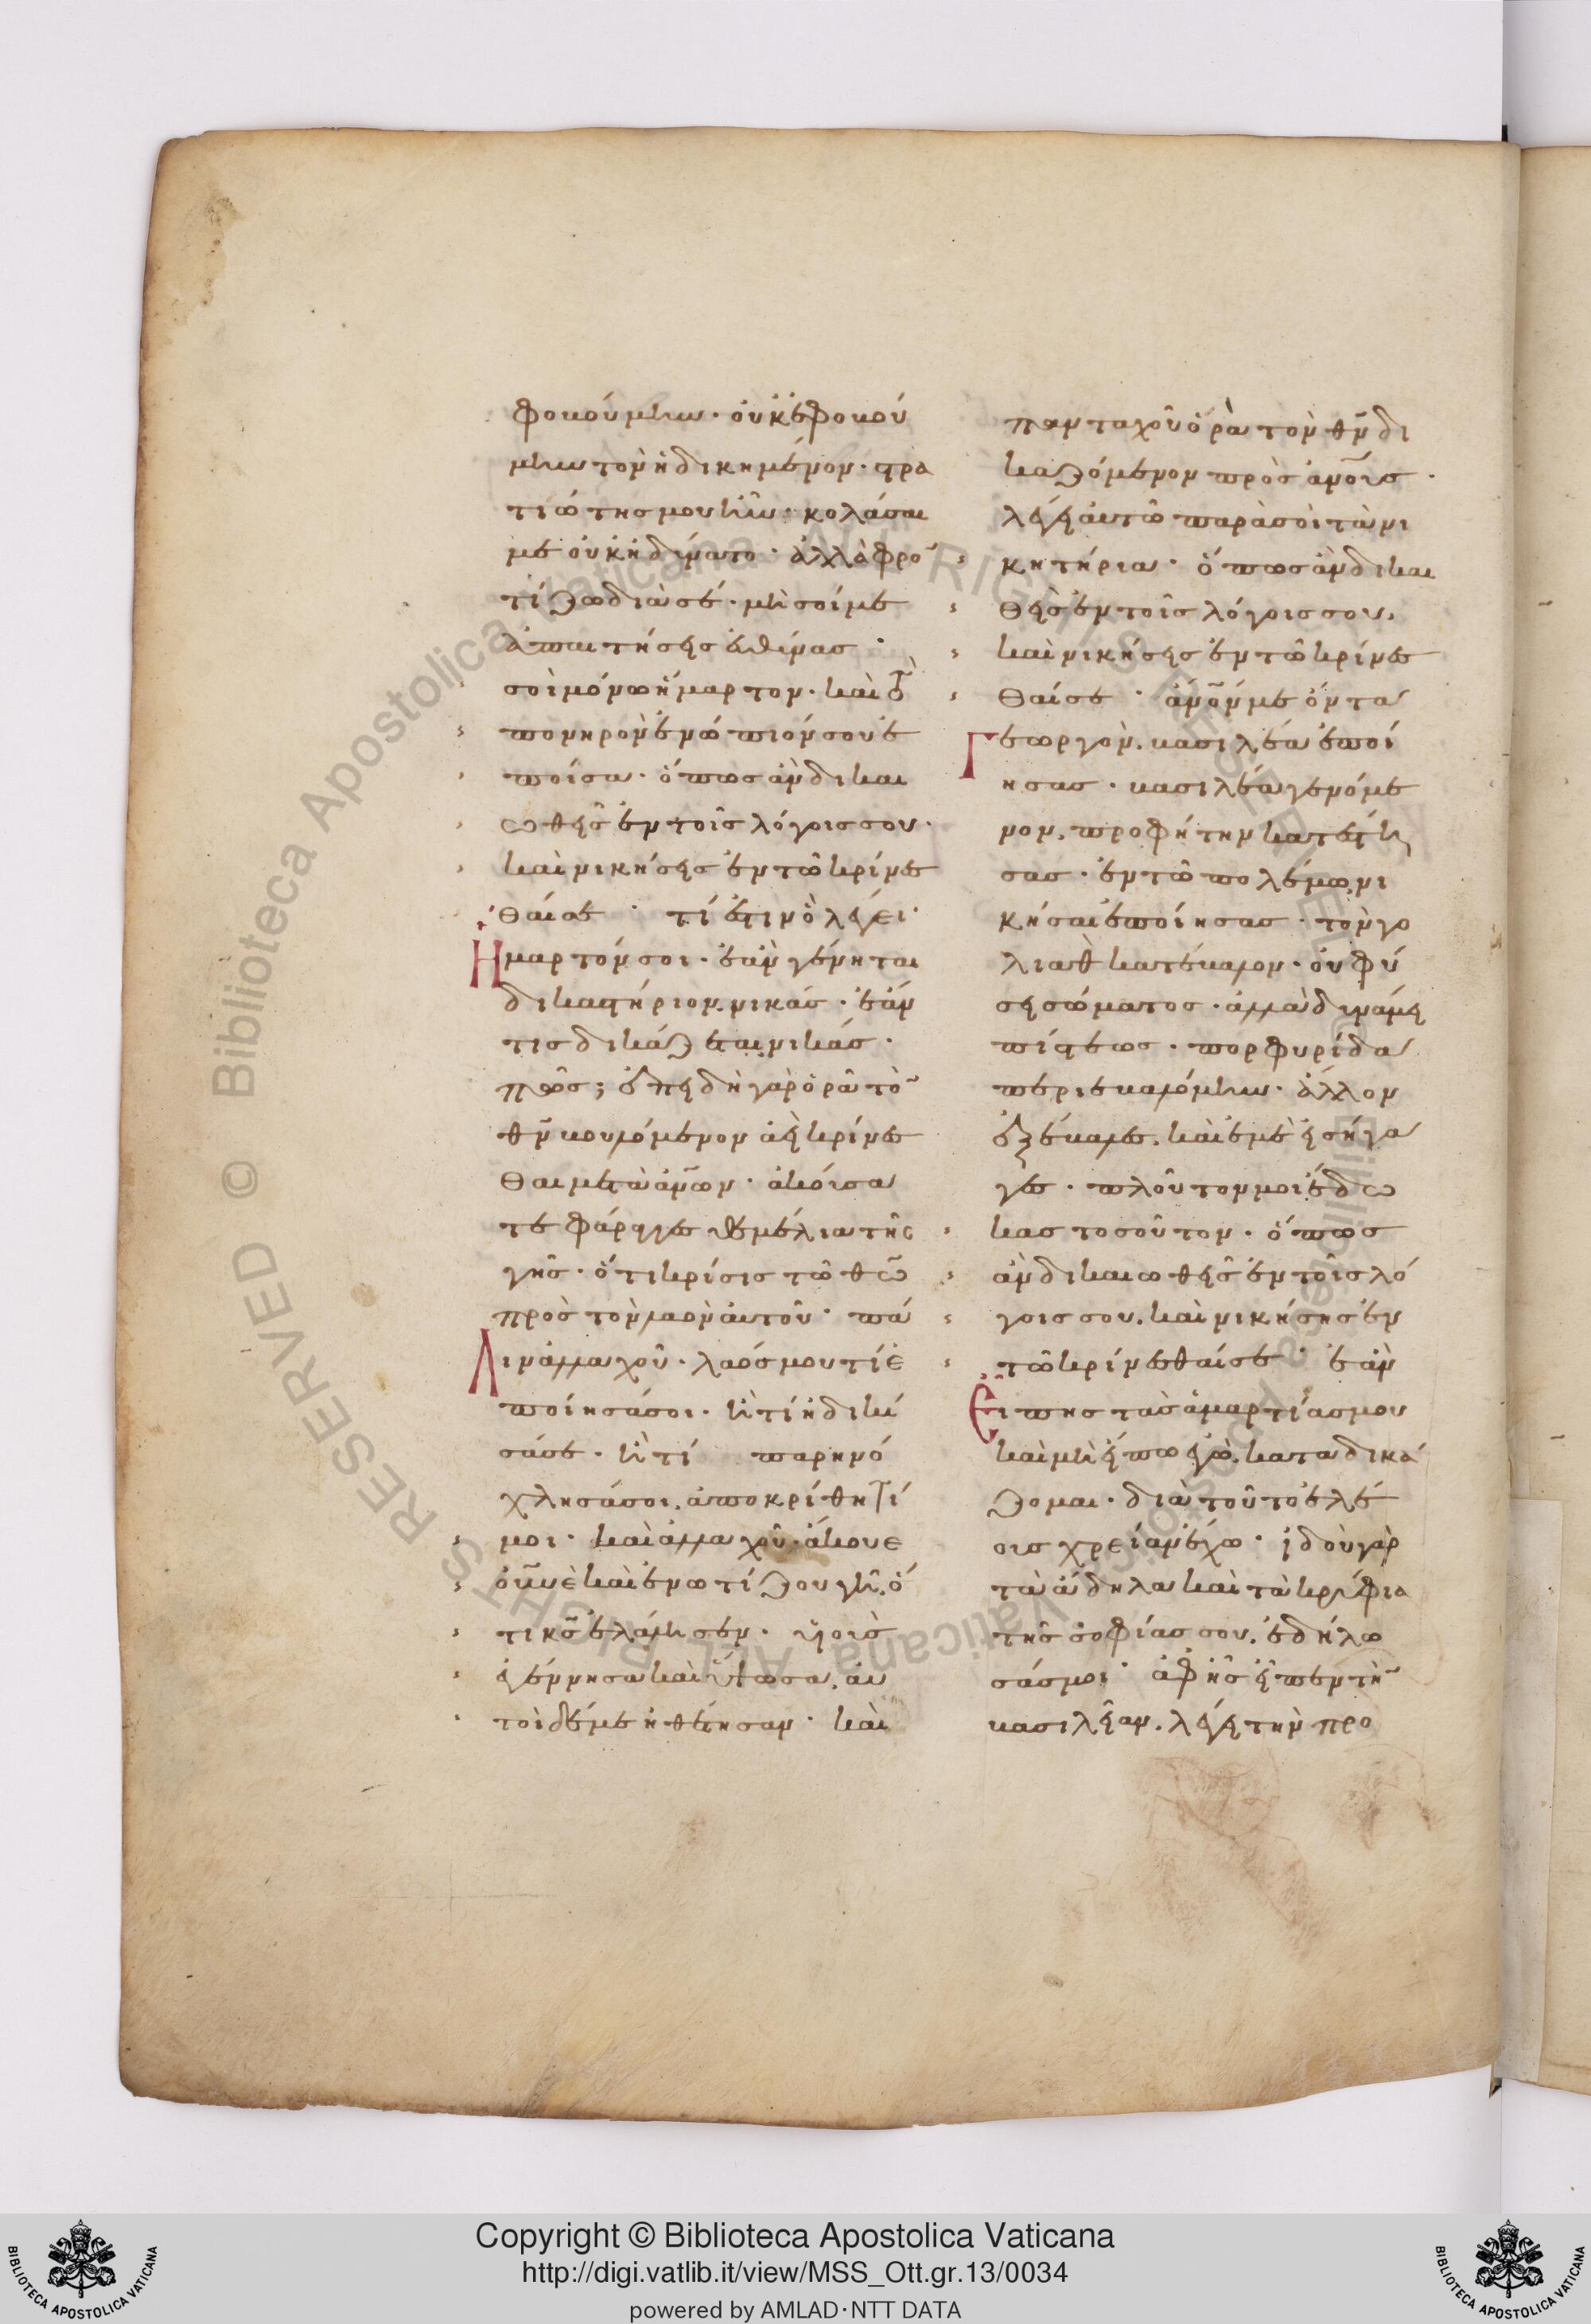 φοβούμην· οὐκ ἐφοβού
μην τὸν ἠδικημένον· στρα
τιώτης μου ἦν· κολάσαι
με οὐκ ἠδύνατο· ἀλλὰ φρο
τίζω διὰ σέ· μὴ σοί με
ἀπαιτήσεις εὐθύνας·
σοὶ μόνω ἥμαρτον· καὶ τὸ
πονηρὸν ἐνώπιόν σου ἐ
ποίσα· ὅπως ἀν δικαι
ωθεῖς ἐν τοῖς λόγοις σου·
καὶ νικήσεις ἐν τῶ κρίνεσ
θαί σε· τί ἐστιν ὃ λέγει·
Ημαρτόν σοι· ἐὰν γένηται
δικαστήριον νικάς· ἐάν
τις δικάζεται νικάς·
πῶς; ἐπειδὴ γὰρ ὁρᾶ τὸ
θν βουλόμενον ἀεὶ κρίνεσ
θαι μετὰ ἀνων· ἀκούσα
τε φάραγγες θεμέλια τῆς
γῆς· ὅτι κρίσις τῶ θω
πρὸς τὸν λαὸν αὐτοῦ· πά
Λιν ἀλλαχοῦ· λαός μου τί ἐ
ποίησά σοι· ἢ τί ἠδικί
σά σε· ἢ τί παρηνό
χλησά σοι. ἀποκρίθητί
μοι· καὶ ἀλλαχοῦ· ἄκουε
οὐνε καὶ ἐνωτίζου γῆ· ὅ
τι κς ἐλάλησεν· ὑιοὺς
ἐγέννησα καὶ ὕψωσα. αὐ
τοὶ δέ με ἠθέτησαν· καὶ
πανταχοῦ ὁρᾶ τὸν θν δι
καζόμενον πρὸς ἀνους·
λέγει αὐτῶ παρὰ σοὶ τὰ νι
κητήρια· ὅπως ἀν δικαι
θεῖς ἐν τοῖς λόγοις σου.
καὶ νικήσεις ἐν τῶ κρίνεσ
θαί σε· ἀνόν με ὄντα
Γεωργὸν. βασιλέα ἐποί
ησας· βασιλέα γενόμε
νον. προφήτην κατέστη
σας· ἐν τῶ πολέμω νι
κῆσαι ἐποίησας· τὸν γο
λιὰθ κατέβαλον· οὐ φύ
σει σώματος· ἀλλὰ δυνάμει
πίστεως· πορφυρίδα
περιεβαλόμην· ἄλλον
ἐξέβαλες. καὶ ἐμὲ εἰσήγα
γες· πλοῦτον μοι ἔδω
κας τοσοῦτον· ὅπως
ἀν δικαιωθεῖς ἐν τοῖς λό
γοις σου. καὶ νικήσης ἐν
τῶ κρίνεσθαί σε· ἐὰν
Εἴπης τὰς ἁμαρτίας μου
καὶ μὴ εἴπω ἐγὼ. καταδικά
ζομαι· διὰ τοῦτο ἐλέ
ους χρείαν ἔχω· ἰδοὺ γὰρ
τὰ ἄδηλα καὶ τὰ κρύφια
τῆς σοφίας σου. ἐδήλω
σάς μοι· ἀφ ῆς εἶπεν τὴ
βασιλείαν. λέγει τὴν προ
Copyright © Biblioteca Apostolica Vaticana
http://digi.vatlib.it/view/MSS_Ott.gr.13/0034
powered by AMLAD·NTT DATA